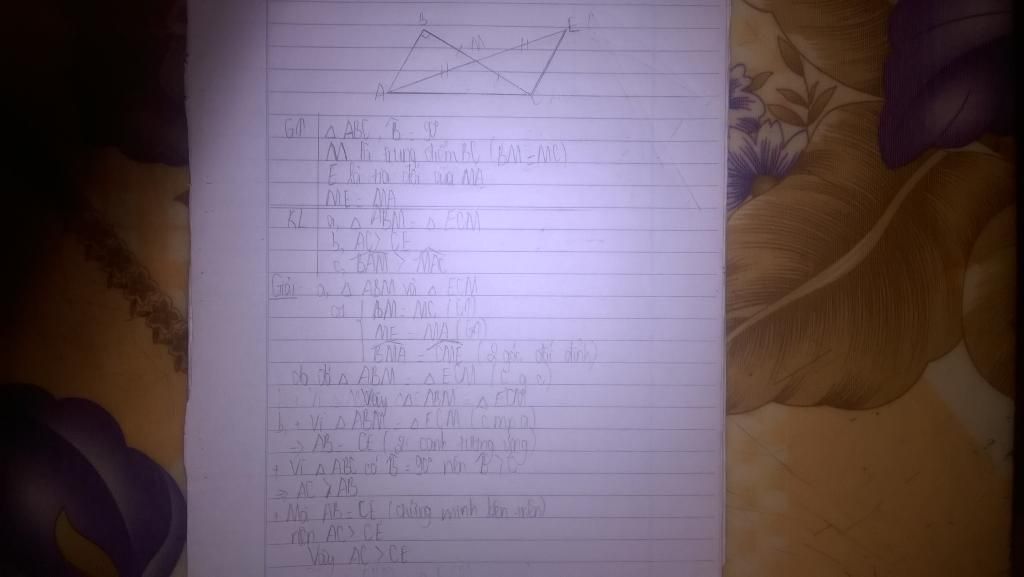 B
E
M
A
C
GT △ ABC, B̂ = 90°
M là trung điểm BC (BM = MC)
E là tia đối của MA
ME = MA
KL a, △ ABM = △ ECM
b, AC > CE
c, BAM > MAC
Giải: a, △ ABM và △ ECM
có BM = MC (GT)
ME = MA (GT)
BMA = CME (2 góc đối đỉnh)
do đó △ ABM = △ ECM (c.g.c)
Vậy △ ABM = △ ECM
b, + Vì △ ABM = △ ECM (cmp a)
⇒ AB = CE (2 cạnh tương ứng)
+ Vì △ ABC có B̂ = 90° nên B̂ > Ĉ
⇒ AC > AB
+ Mà AB = CE (chứng minh bên trên)
nên AC > CE
Vậy AC > CE